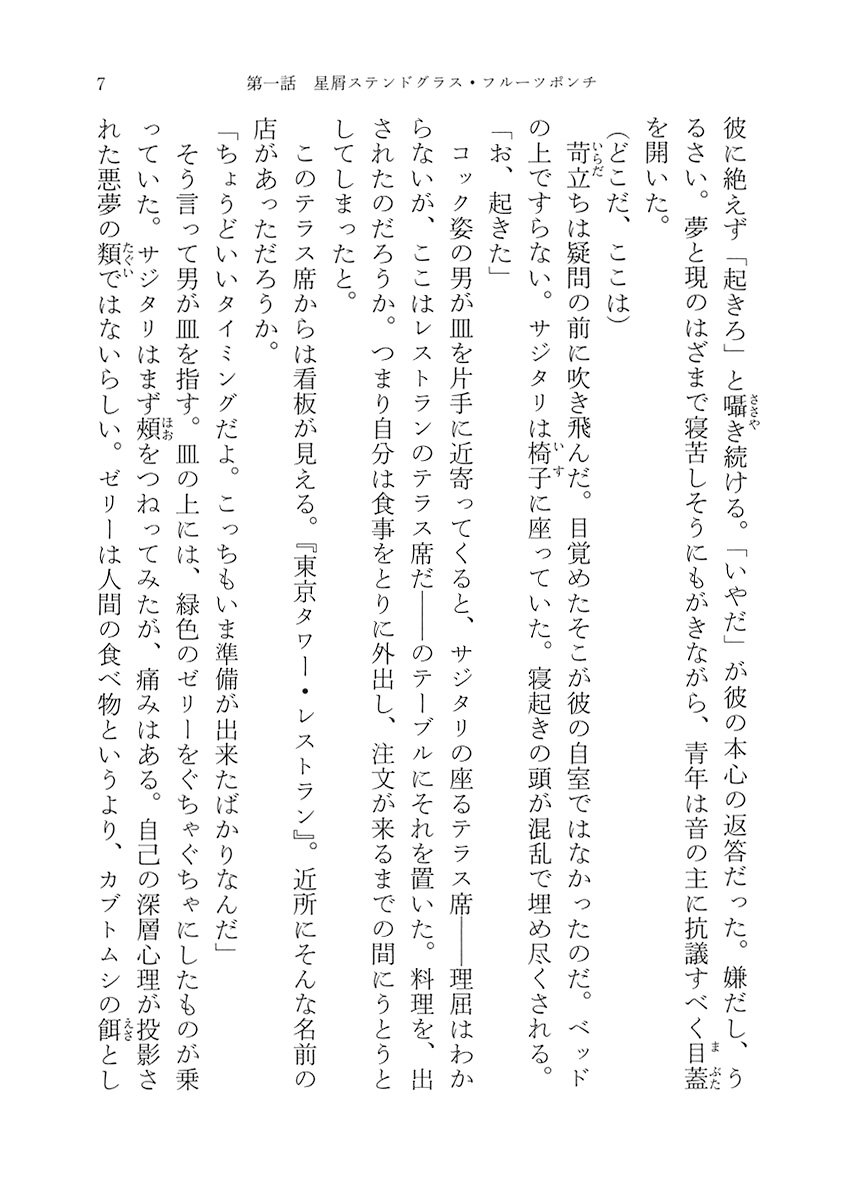 7
第一話　星屑ステンドグラス・フルーツポンチ
彼に絶えず「起きろ」と囁き続ける。「いやだ」が彼の本心の返答だった。嫌だし、う
るさい。夢と現のはざまで寝苦しそうにもがきながら、青年は音の主に抗議すべく目蓋
を開いた。
（どこだ、ここは）
　苛立ちは疑問の前に吹き飛んだ。目覚めたそこが彼の自室ではなかったのだ。ベッド
の上ですらない。サジタリは椅子に座っていた。寝起きの頭が混乱で埋め尽くされる。
「お、起きた」
　コック姿の男が皿を片手に近寄ってくると、サジタリの座るテラス席――理屈はわか
らないが、ここはレストランのテラス席だ――のテーブルにそれを置いた。料理を、出
されたのだろうか。つまり自分は食事をとりに外出し、注文が来るまでの間にうとうと
してしまったと。
　このテラス席からは看板が見える。『東京タワー・レストラン』。近所にそんな名前の
店があっただろうか。
「ちょうどいいタイミングだよ。こっちもいま準備が出来たばかりなんだ」
　そう言って男が皿を指す。皿の上には、緑色のゼリーをぐちゃぐちゃにしたものが乗
っていた。サジタリはまず頬をつねってみたが、痛みはある。自己の深層心理が投影さ
れた悪夢の類ではないらしい。ゼリーは人間の食べ物というより、カブトムシの餌とし